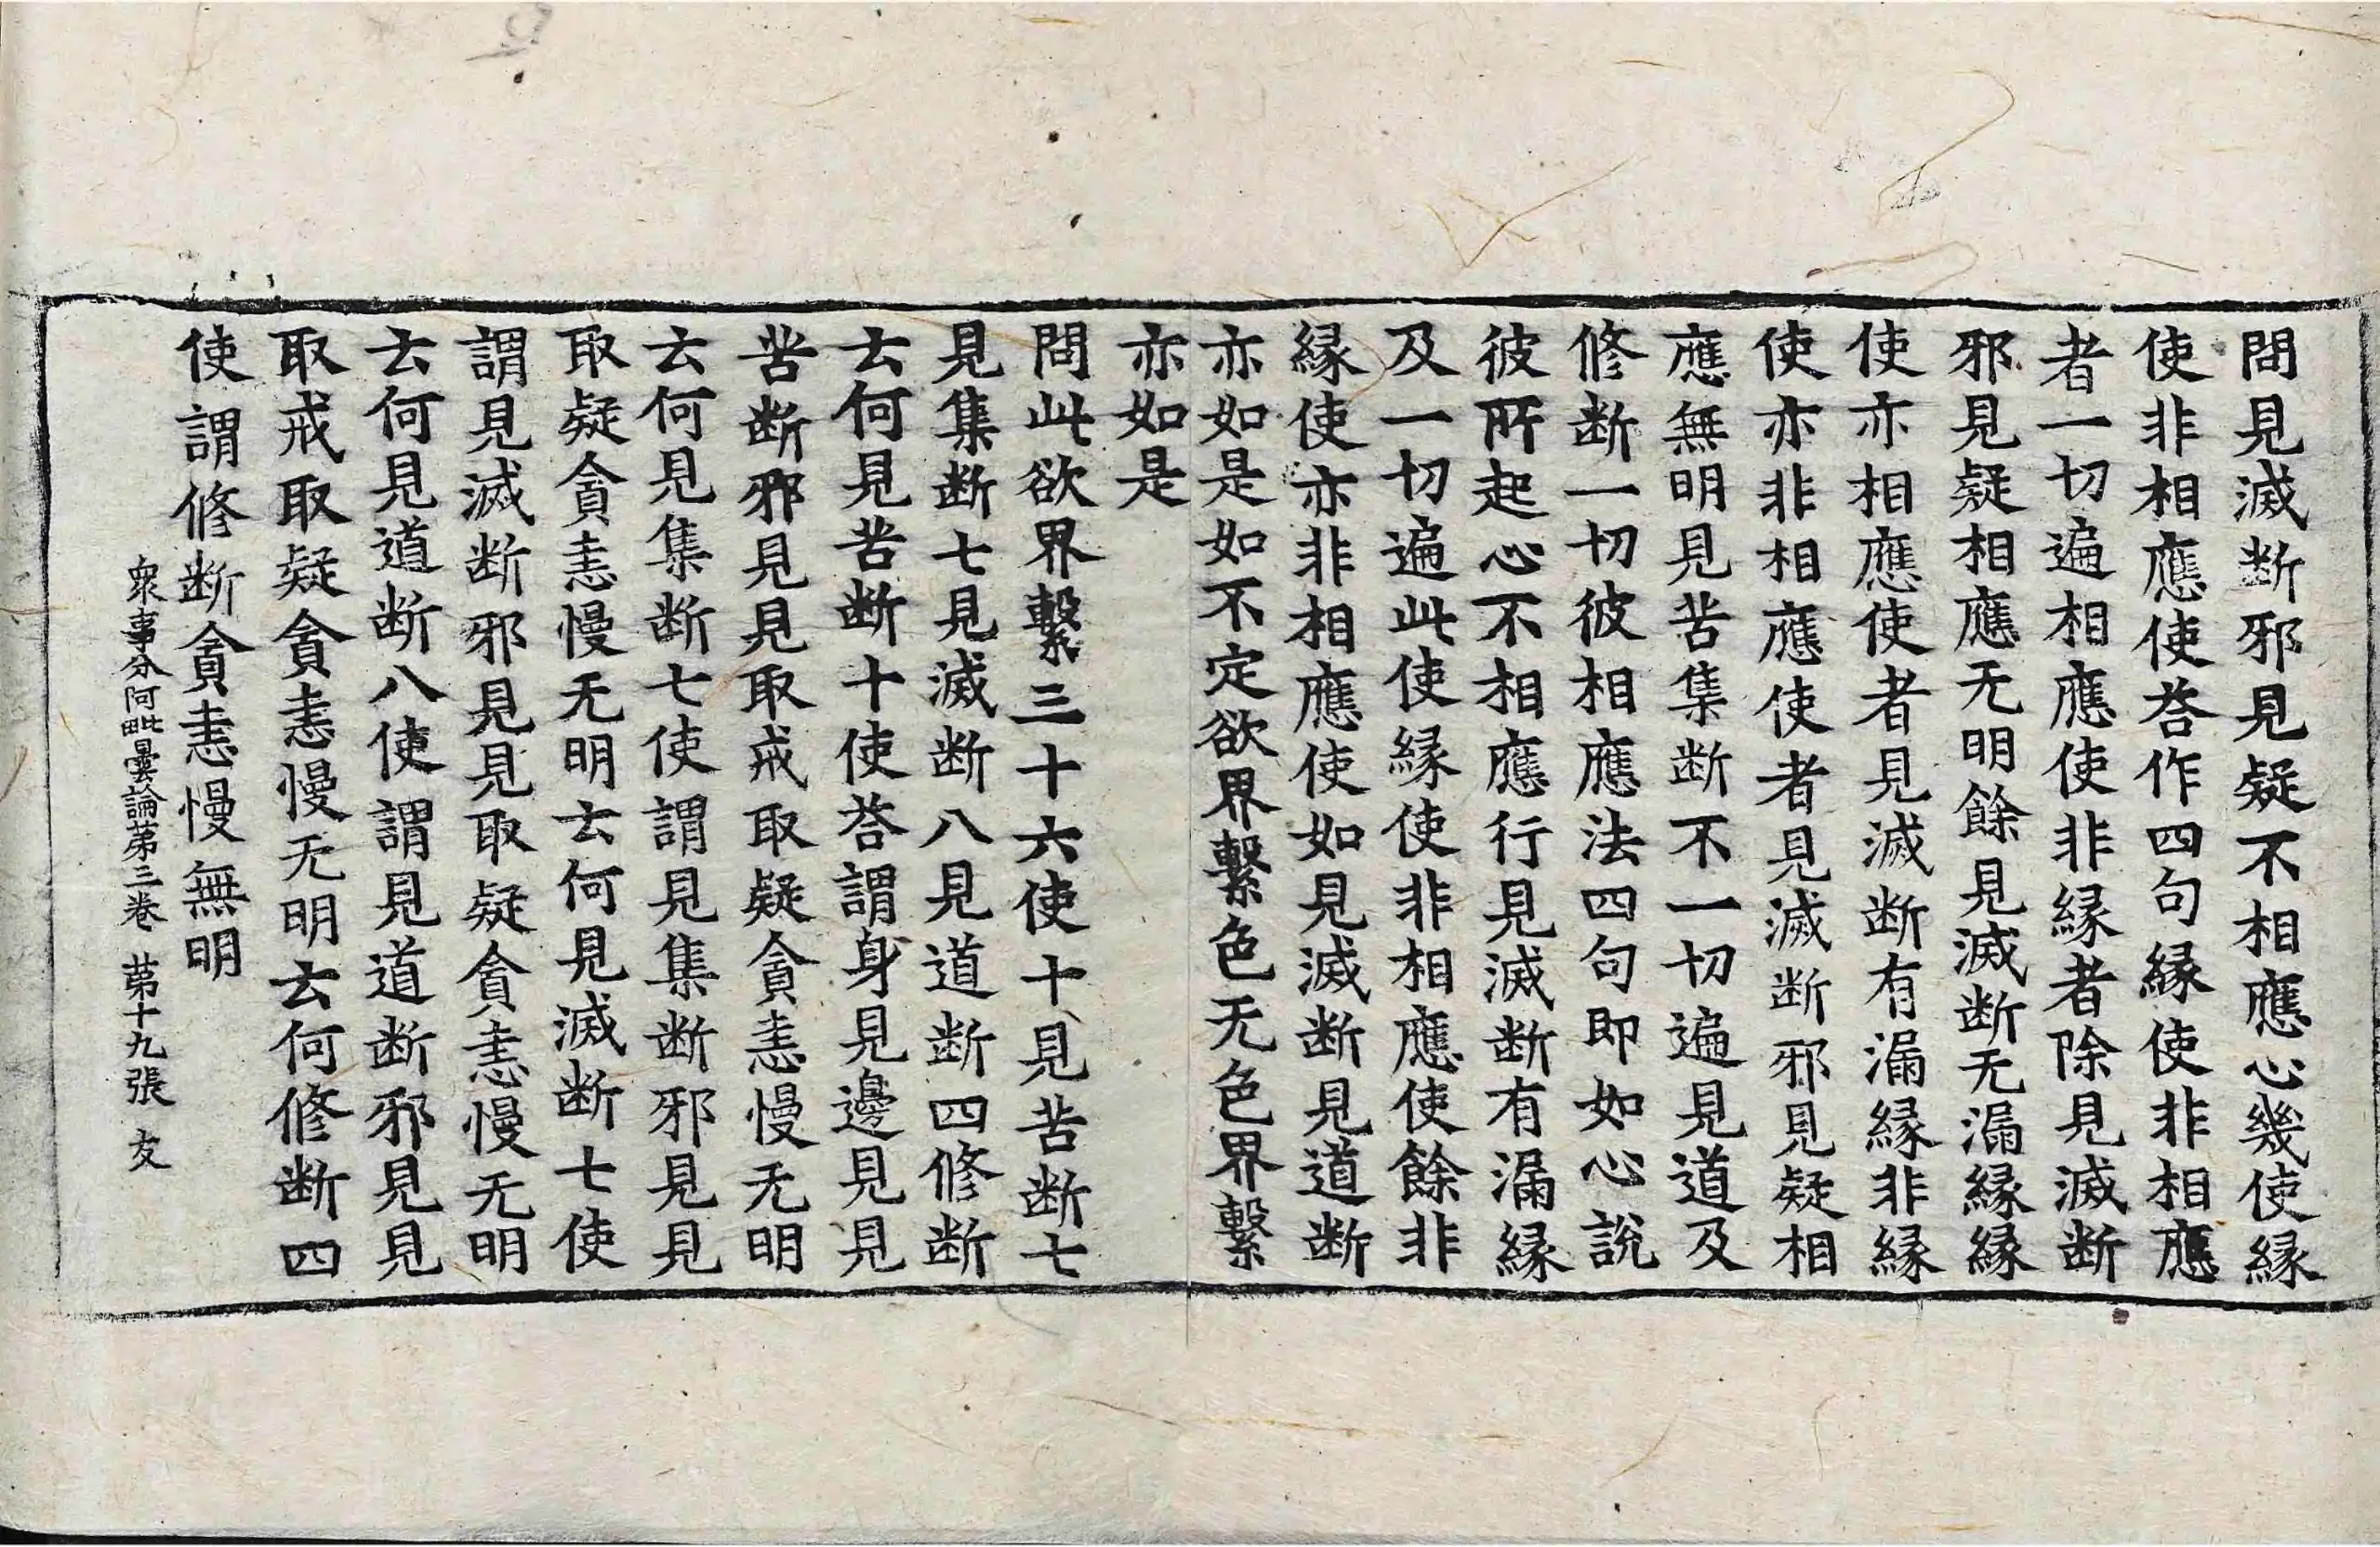 問見滅断邪見疑不相應心幾使縁
使非相應使荅作四句縁使非相應
者一切遍相應使非縁者除見滅断
邪見疑相應无明餘見滅断无漏縁縁
使亦相應使者見滅断有漏縁非縁
使亦非相應使者見滅断邪見疑相
應無明見苦集断不一切遍見道及
修断一切彼相應法四句即如心說
彼所起心不相應行見滅断有漏縁
及一切遍此使縁使非相應使餘非
縁使亦非相應使如見滅断見道断
亦如是如不定欲界繫色无色界繫
亦如是
問此欲界繫三十六使十見苦断七
見集断七見滅断八見道断四修断
去何見苦断十使荅謂身見邊見見
苦断邪見見取戒取疑貪恚慢无明
去何見集断七使謂見集断邪見見
取疑貪恚慢无明去何見滅断七使
謂見滅断邪見見取疑貪恚慢无明
去何見道断八使謂見道断邪見見
取戒取疑貪恚慢无明去何修断四
使謂修断貪恚慢無明
衆事分阿毗曇論苐三卷 苐十九張 友